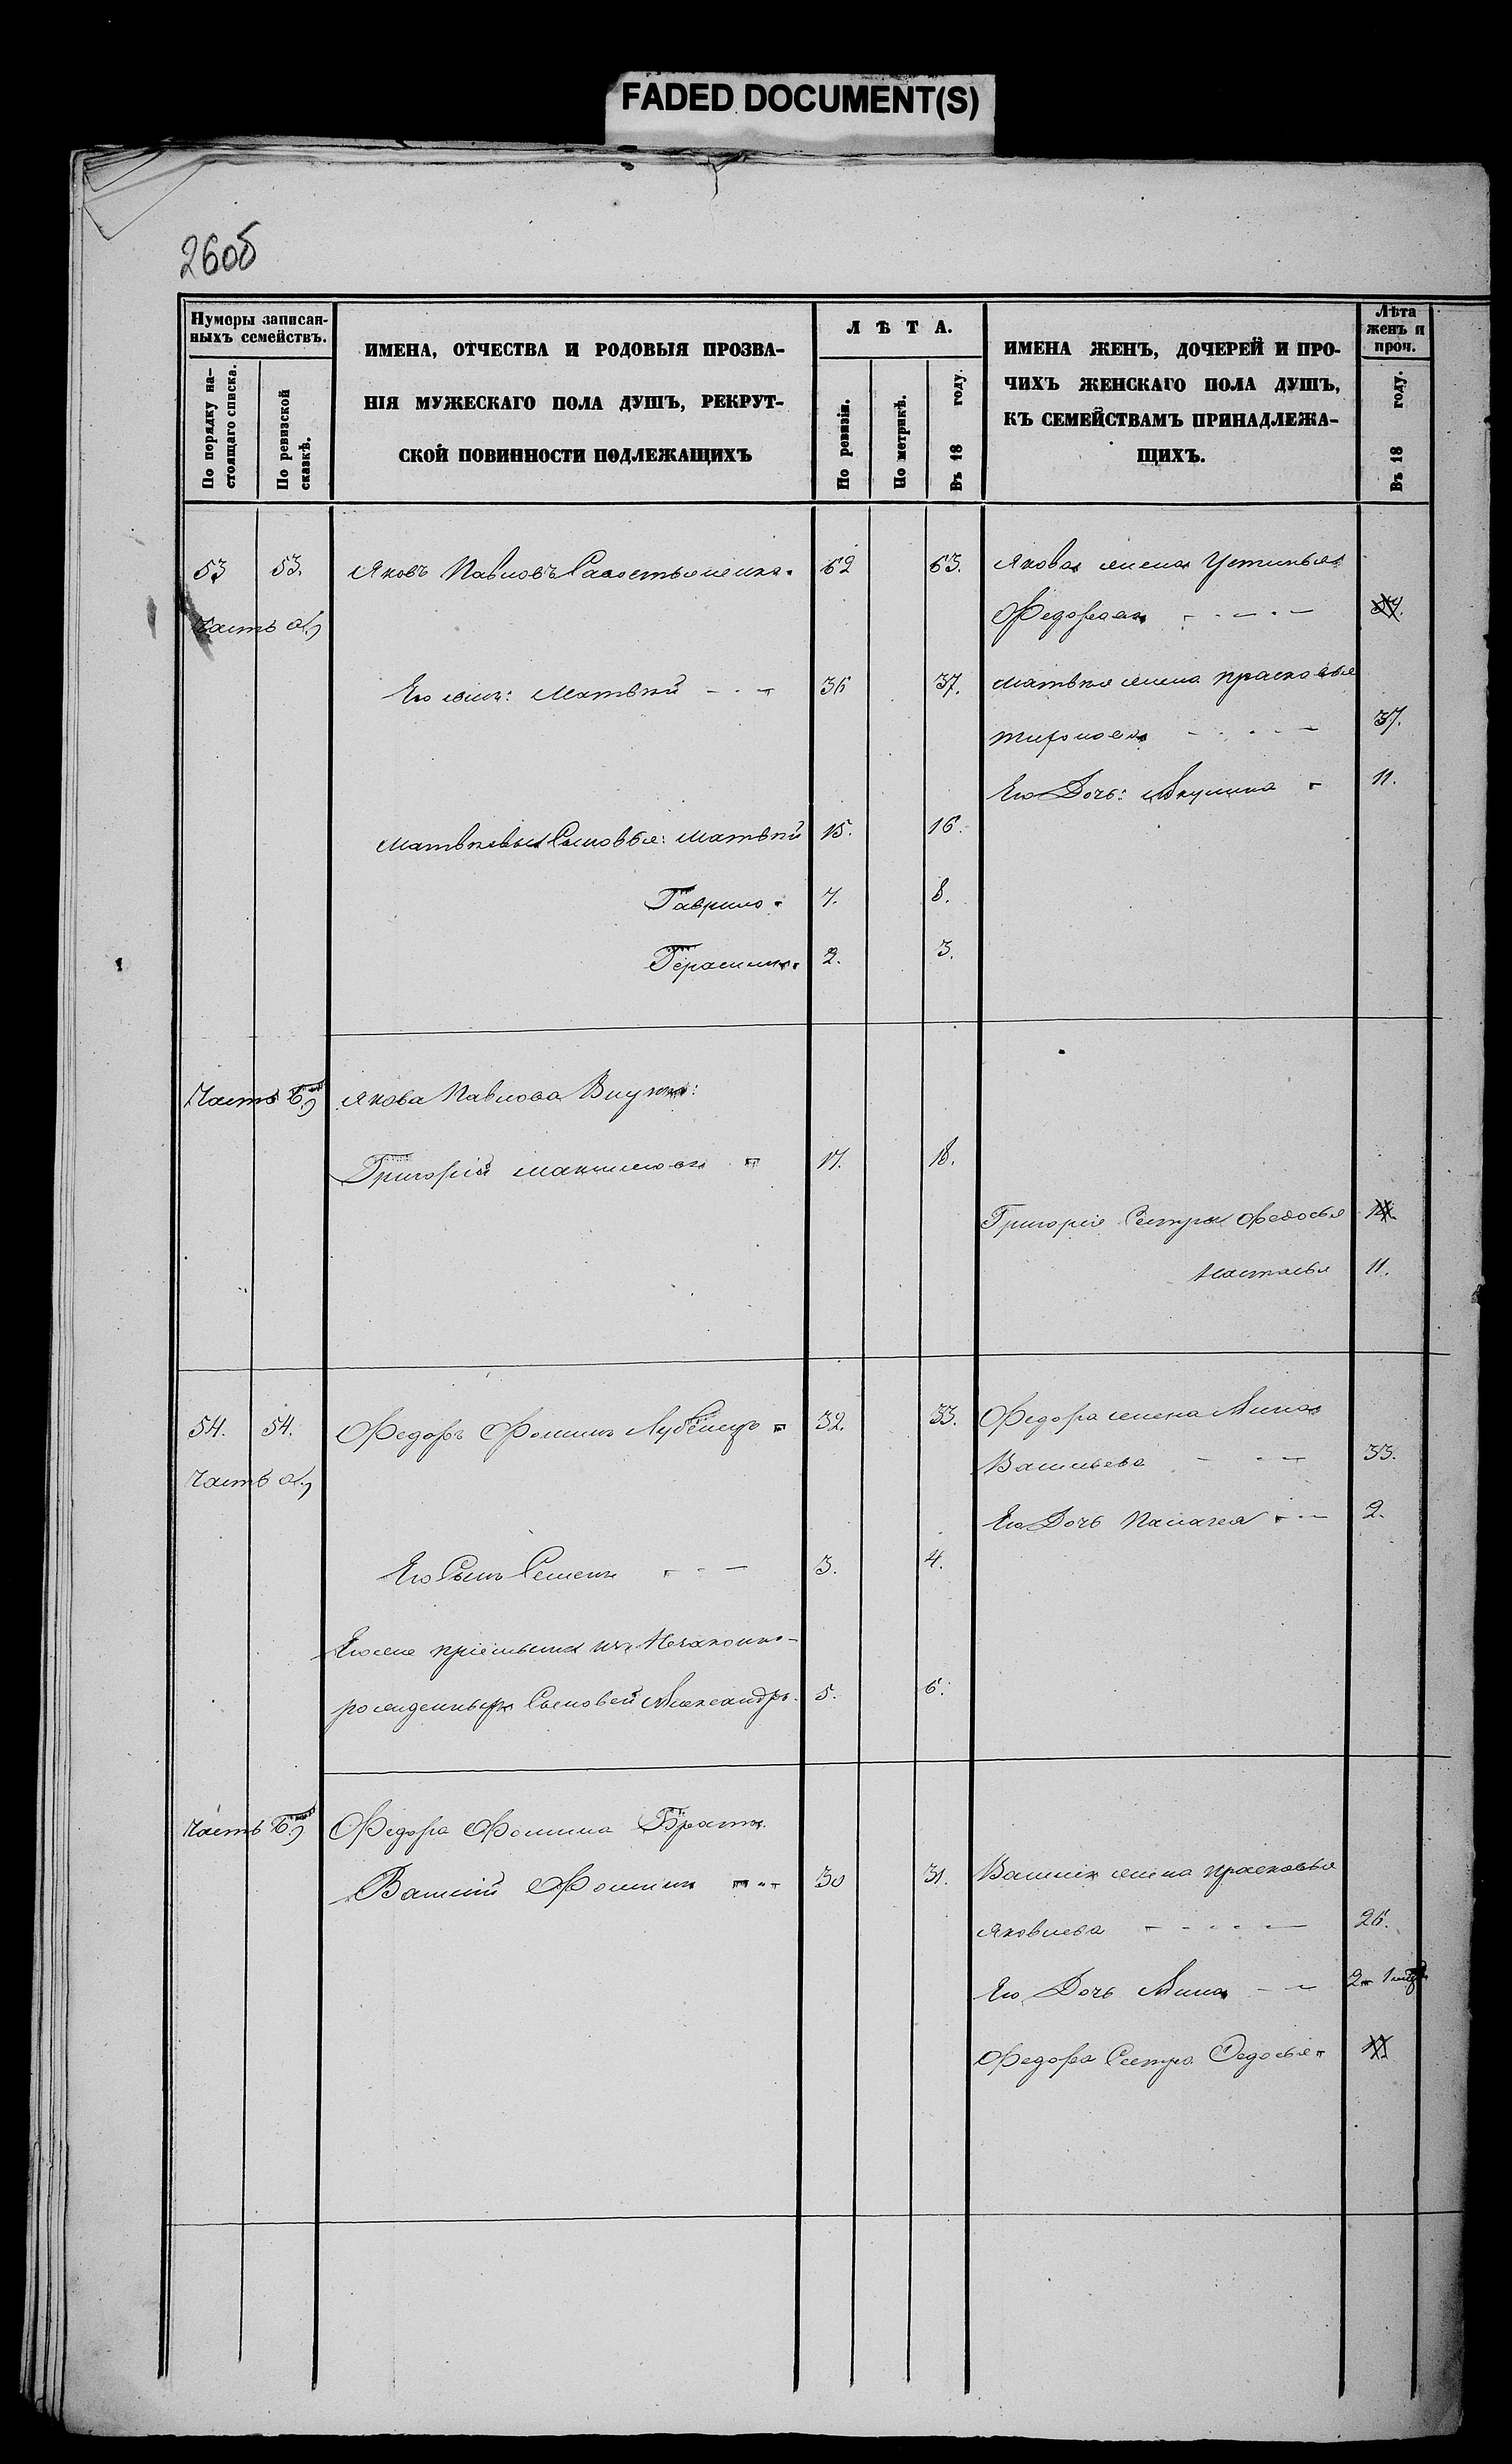 FADED DOCUMENT(S)
260б
Нумеры записан-
ныхъ семействъ.
По порядку на-
стоящаго списка.
По ревизской
сказкѣ.
ИМЕНА, ОТЧЕСТВА И РОДОВЫЯ ПРОЗВА-
НІЯ МУЖЕСКАГО ПОЛА ДУШЪ, РЕКРУТ-
СКОЙ ПОВИННОСТИ ПОДЛЕЖАЩИХЪ
ЛѢТА.
По ревизіи.
По метрикѣ.
Въ 18 году.
ИМЕНА ЖЕНЪ, ДОЧЕРЕЙ И ПРО-
ЧИХЪ ЖЕНСКАГО ПОЛА ДУШЪ,
КЪ СЕМЕЙСТВАМЪ ПРИНАДЛЕЖА-
ЩИХЪ.
Лѣта
женъ и
проч.
Въ 18 году.
53 53. Яковъ Павловъ 62 63. Якова жена Устинья
Часть а.) Федорова
Его сынъ: Матвѣй 36 37. Матвѣя жена Прасковья
37.
Его Дочь: Акулина 11.
Матвѣевы Сыновья: Матвѣй 15. 16.
Гаврило 7. 8.
Герасимъ 2. 3.
Часть б.) Якова Павлова Внукъ:
Григорій Максимовъ 17. 18.
Григорія Сестры Федосья
Настасья 11.
54. 54. Федоръ Фоминъ Лубенецъ 32. 33. Федора жена Анна
Часть а.) Васильева 33.
Его Дочь Палагея 2.
Его Сынъ Семенъ 3. 4.
Его же пріемышъ изъ Незаконно-
рожденныхъ Сыновей Александръ 5. 6.
Часть б.) Федора Фомина Братъ
Василій Фоминъ 30 31. Василія жена Прасковья
Яковлева 26.
Его Дочь Анна 2
Федора Сестра Федосья